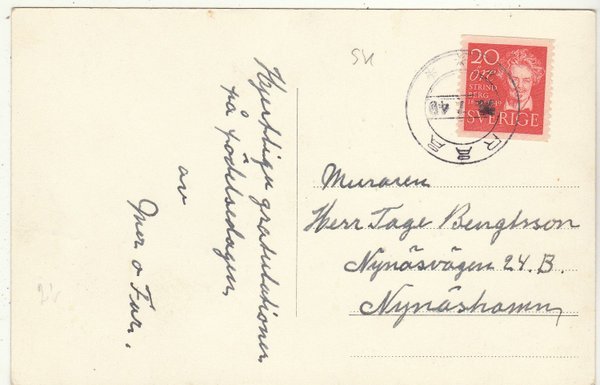 Hjertliga gratulationer
på födelsedagen,
av
Mor o Far.
SK
20
öre
STRIND
BERG
SVERIGE
Muraren
Herr Tage Bengtsson
Nynäsvägen 24. B.
Nynäshamn,